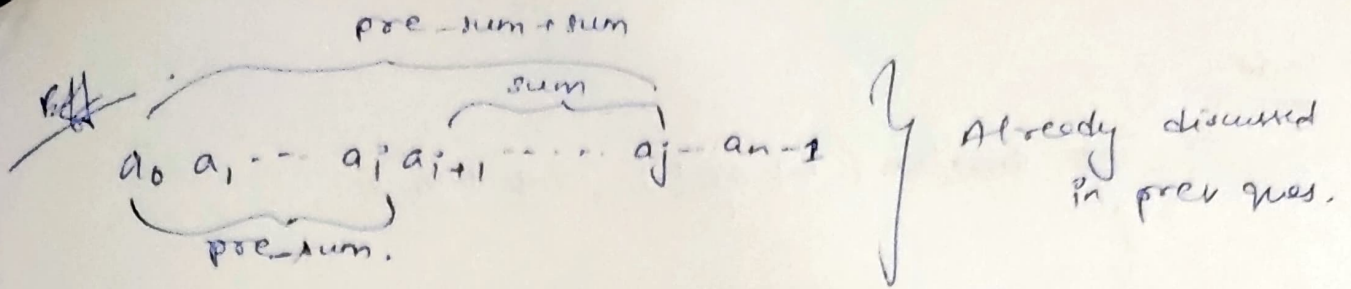 pre_sum + sum
sum
a₀ a₁ --- aᵢ aᵢ₊₁ ------ aⱼ -- aₙ₋₁
pre_sum.
Already discussed
in prev ques.